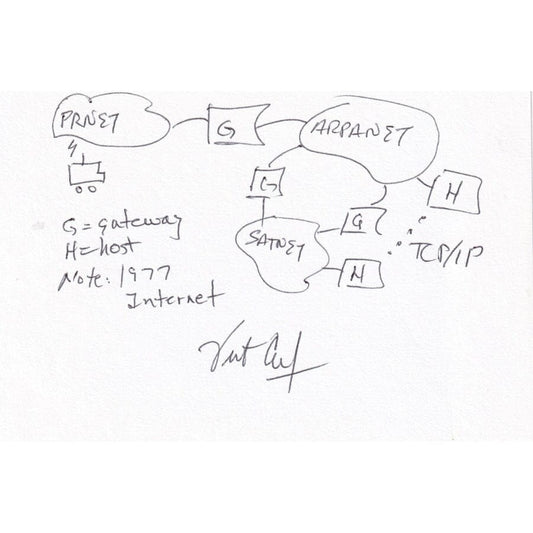 PRNET
G
ARPANET
G
H
G
SATNET
H
TCP/IP
G = gateway
H = host
Note: 1977
Internet
Vint Cerf